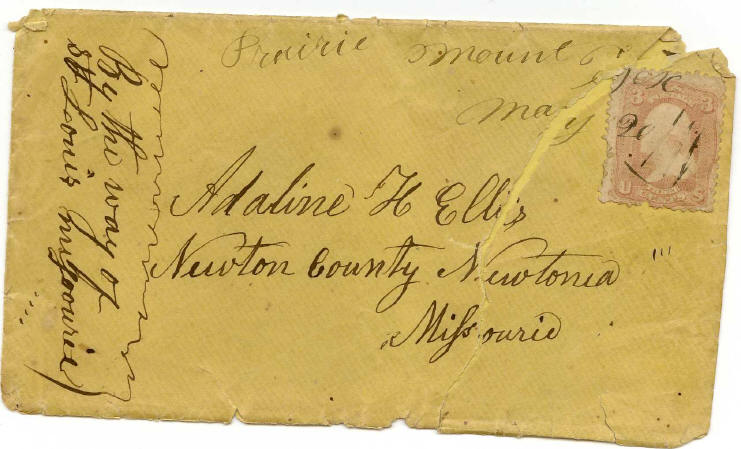 Prairie Mount
May 20
3 3
U S
Adaline H Ellis
Newton County Newtonia
Missourie
By the way of
St Louis missourie